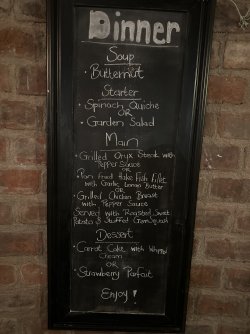 Dinner
Soup
• Butternut
Starter
• Spinach Quiche
OR
• Garden Salad
Main
• Grilled Oryx Steak with
Pepper Sauce
• Pan Fried Hake Fish Fillet
with Garlic Lemon Butter
OR
• Grilled Chicken Breast
with Pepper Sauce
Served with Roasted Sweet
Potato & Stuffed Gem Squash
Dessert
• Carrot Cake with Whipped
Cream
OR
• Strawberry Parfait
Enjoy!